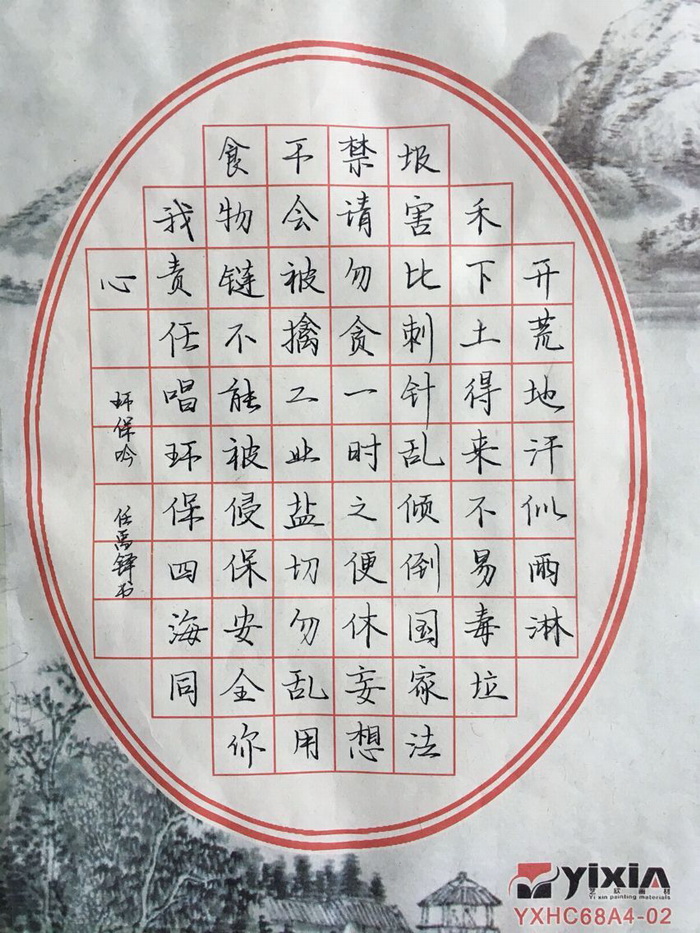 开荒地汗似雨淋
禾下土得来不易毒垃
圾害比刺针乱倾倒国家法
禁请勿贪一时之便休妄想
干会被擒工业盐切勿乱用
食物链不能被侵保安全你
我责任唱环保四海同
心
环保吟
任禹铎书
yixin
艺欣画材
Yi xin painting materials
YXHC68A4-02